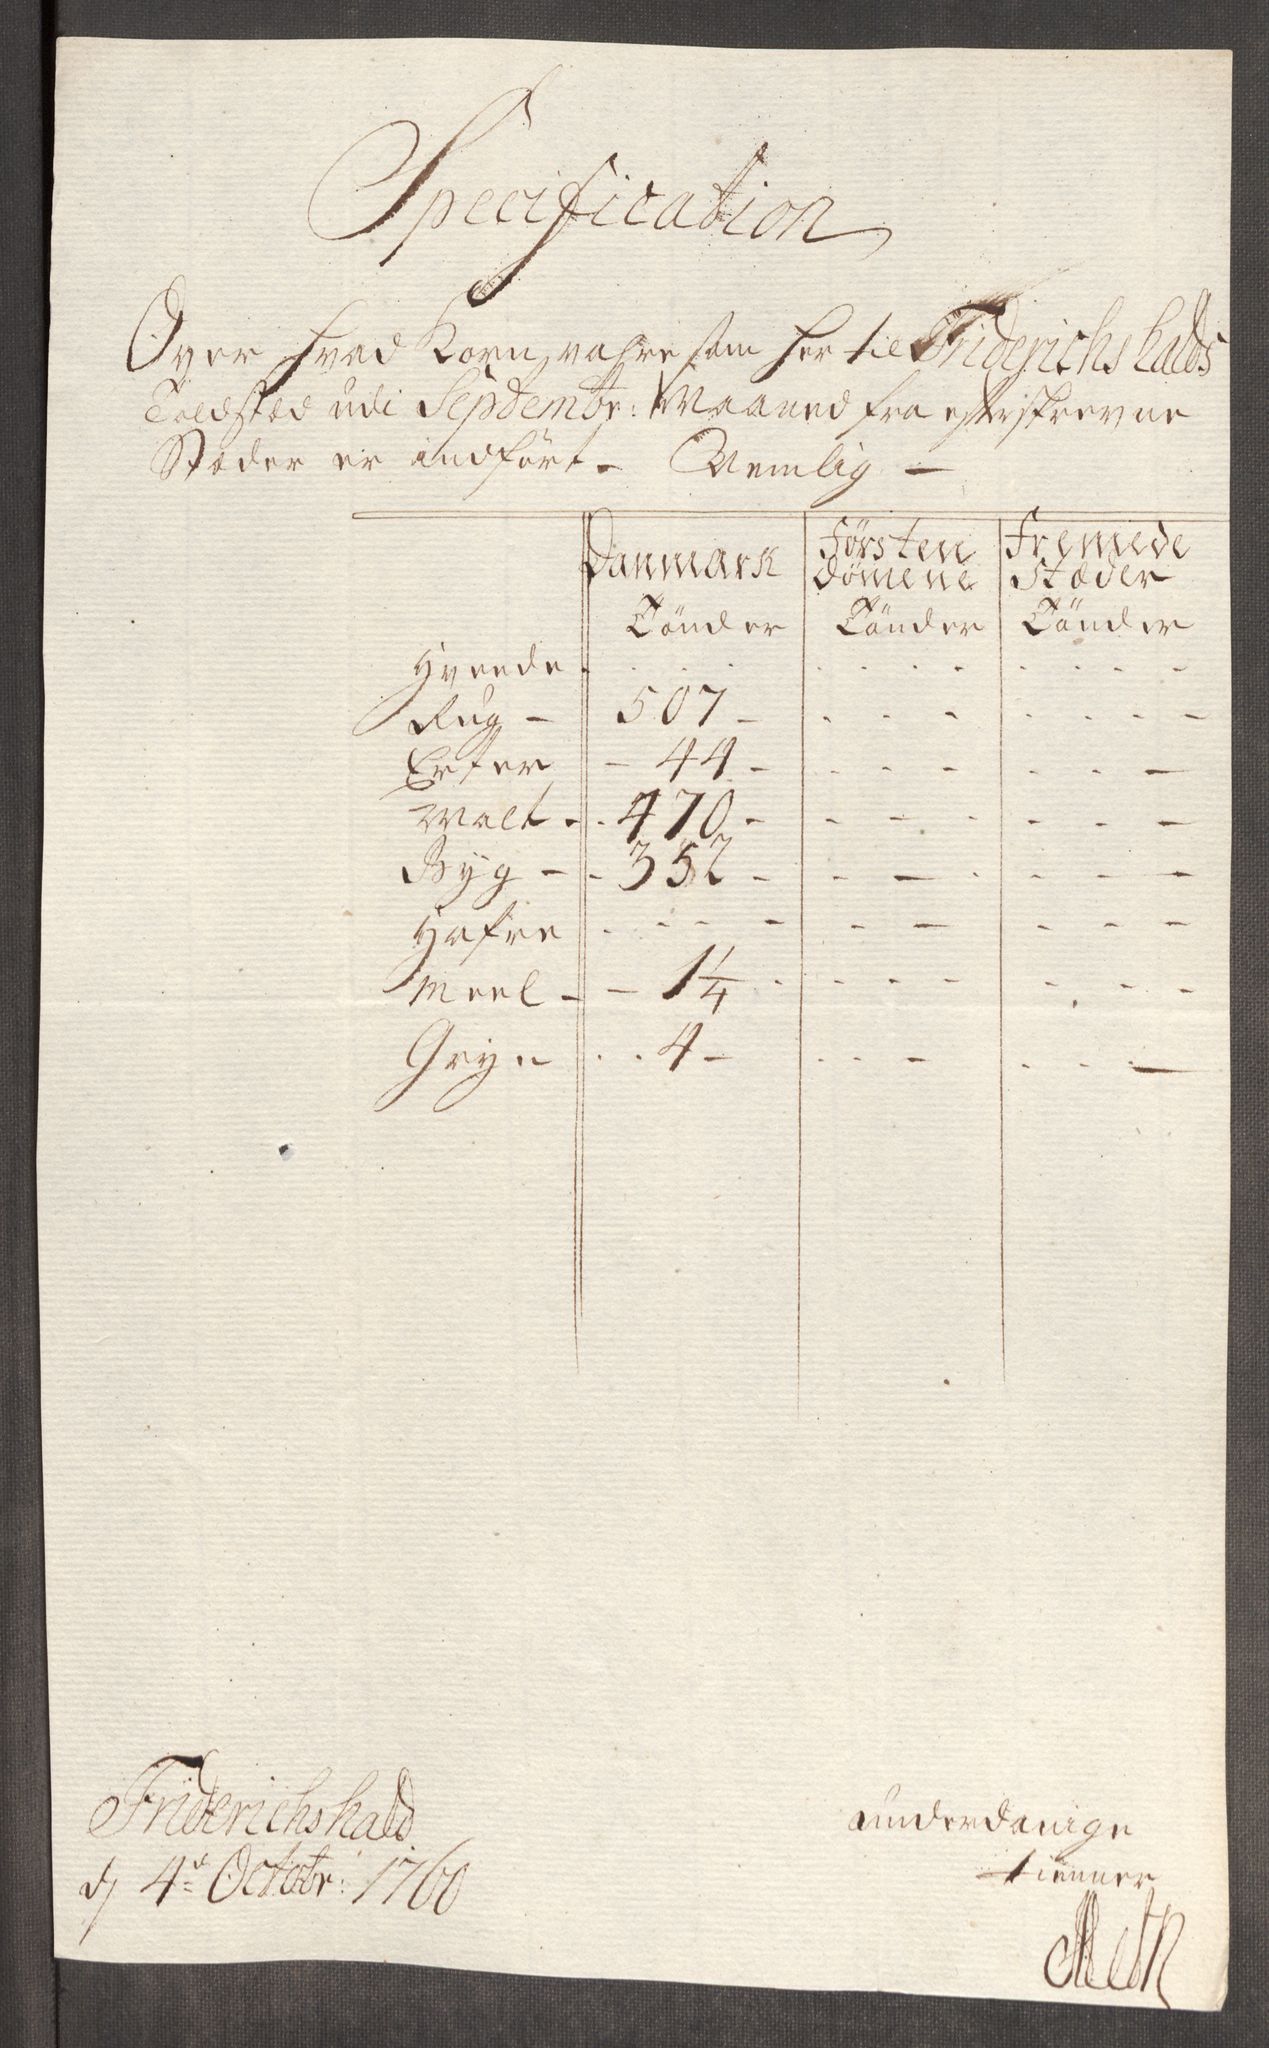 Specification
Over hvad Korn vahre som her til Friderichshalds
Toldsted udi Septembr: Maaned fra efterskrevne
Stæder er indført. Nemlig —
Danmark Førsten dømene Fremede Stæder
Tønder Tønder Tønder
Hvede
Rug — 507 —
Erter — 44 —
Malt — 470 —
Byg — 352 —
Hafre
Meel — 1 1/4
Gryn 4 —
Friderichshald
d 4d Octobr: 1760
underdanige
tienner